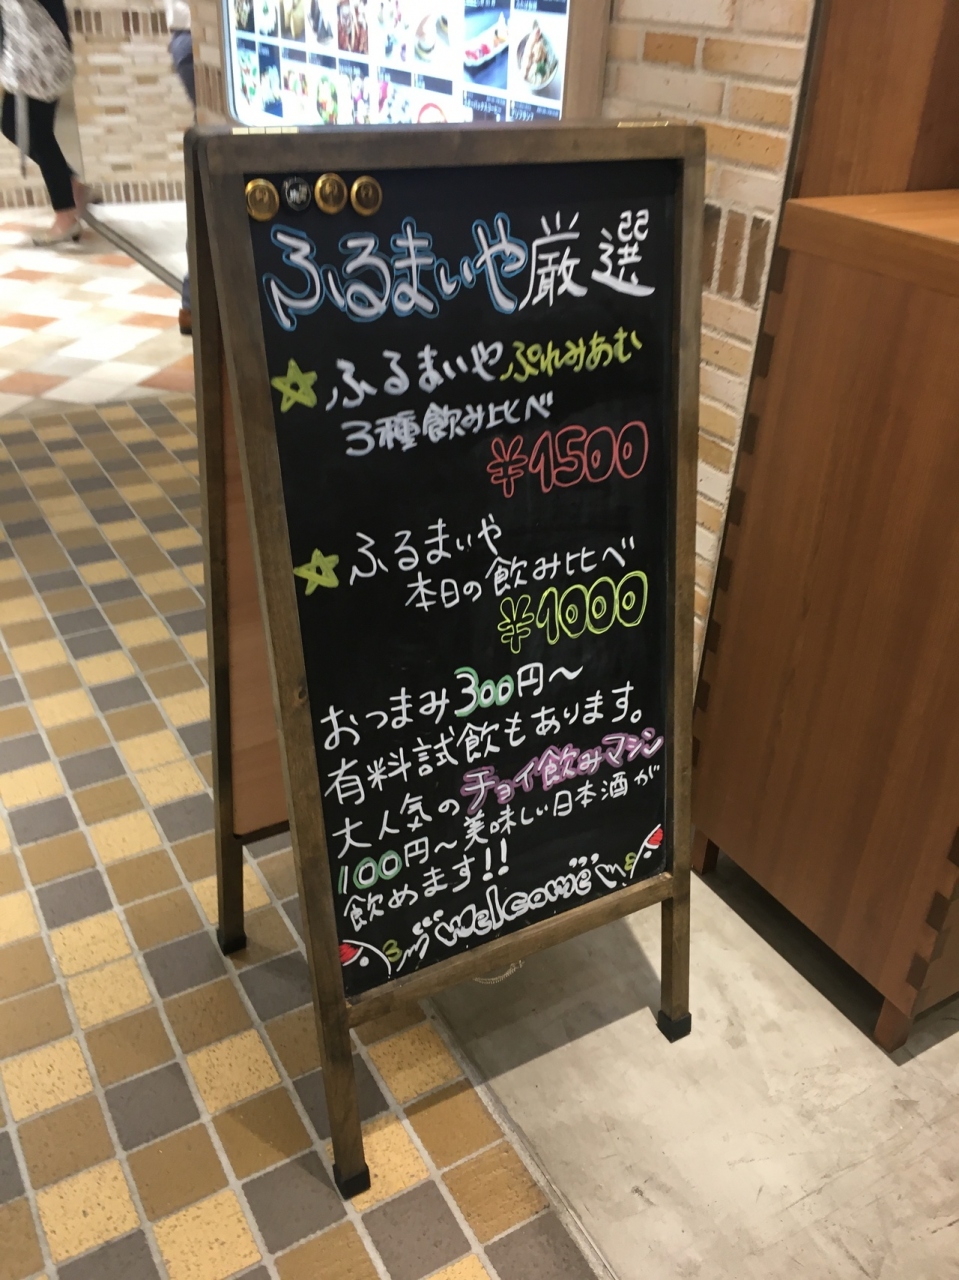 ふるまいや厳選
ふるまいやぷれみあむ
3種飲み比べ
¥1500
ふるまいや
本日の飲み比べ
¥1000
おつまみ300円〜
有料試飲もあります。
大人気のチョイ飲みマシン
100円〜美味しい日本酒が
飲めます!!
welcome